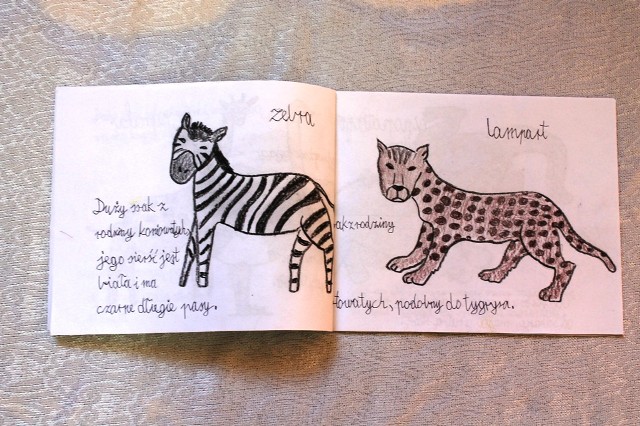 zebra
Duży ssak z
rodziny koniowatych,
jego sierść jest
biała i ma
czarne długie pasy.
lampart
ak z rodziny
towatych, podobny do tygrysa.